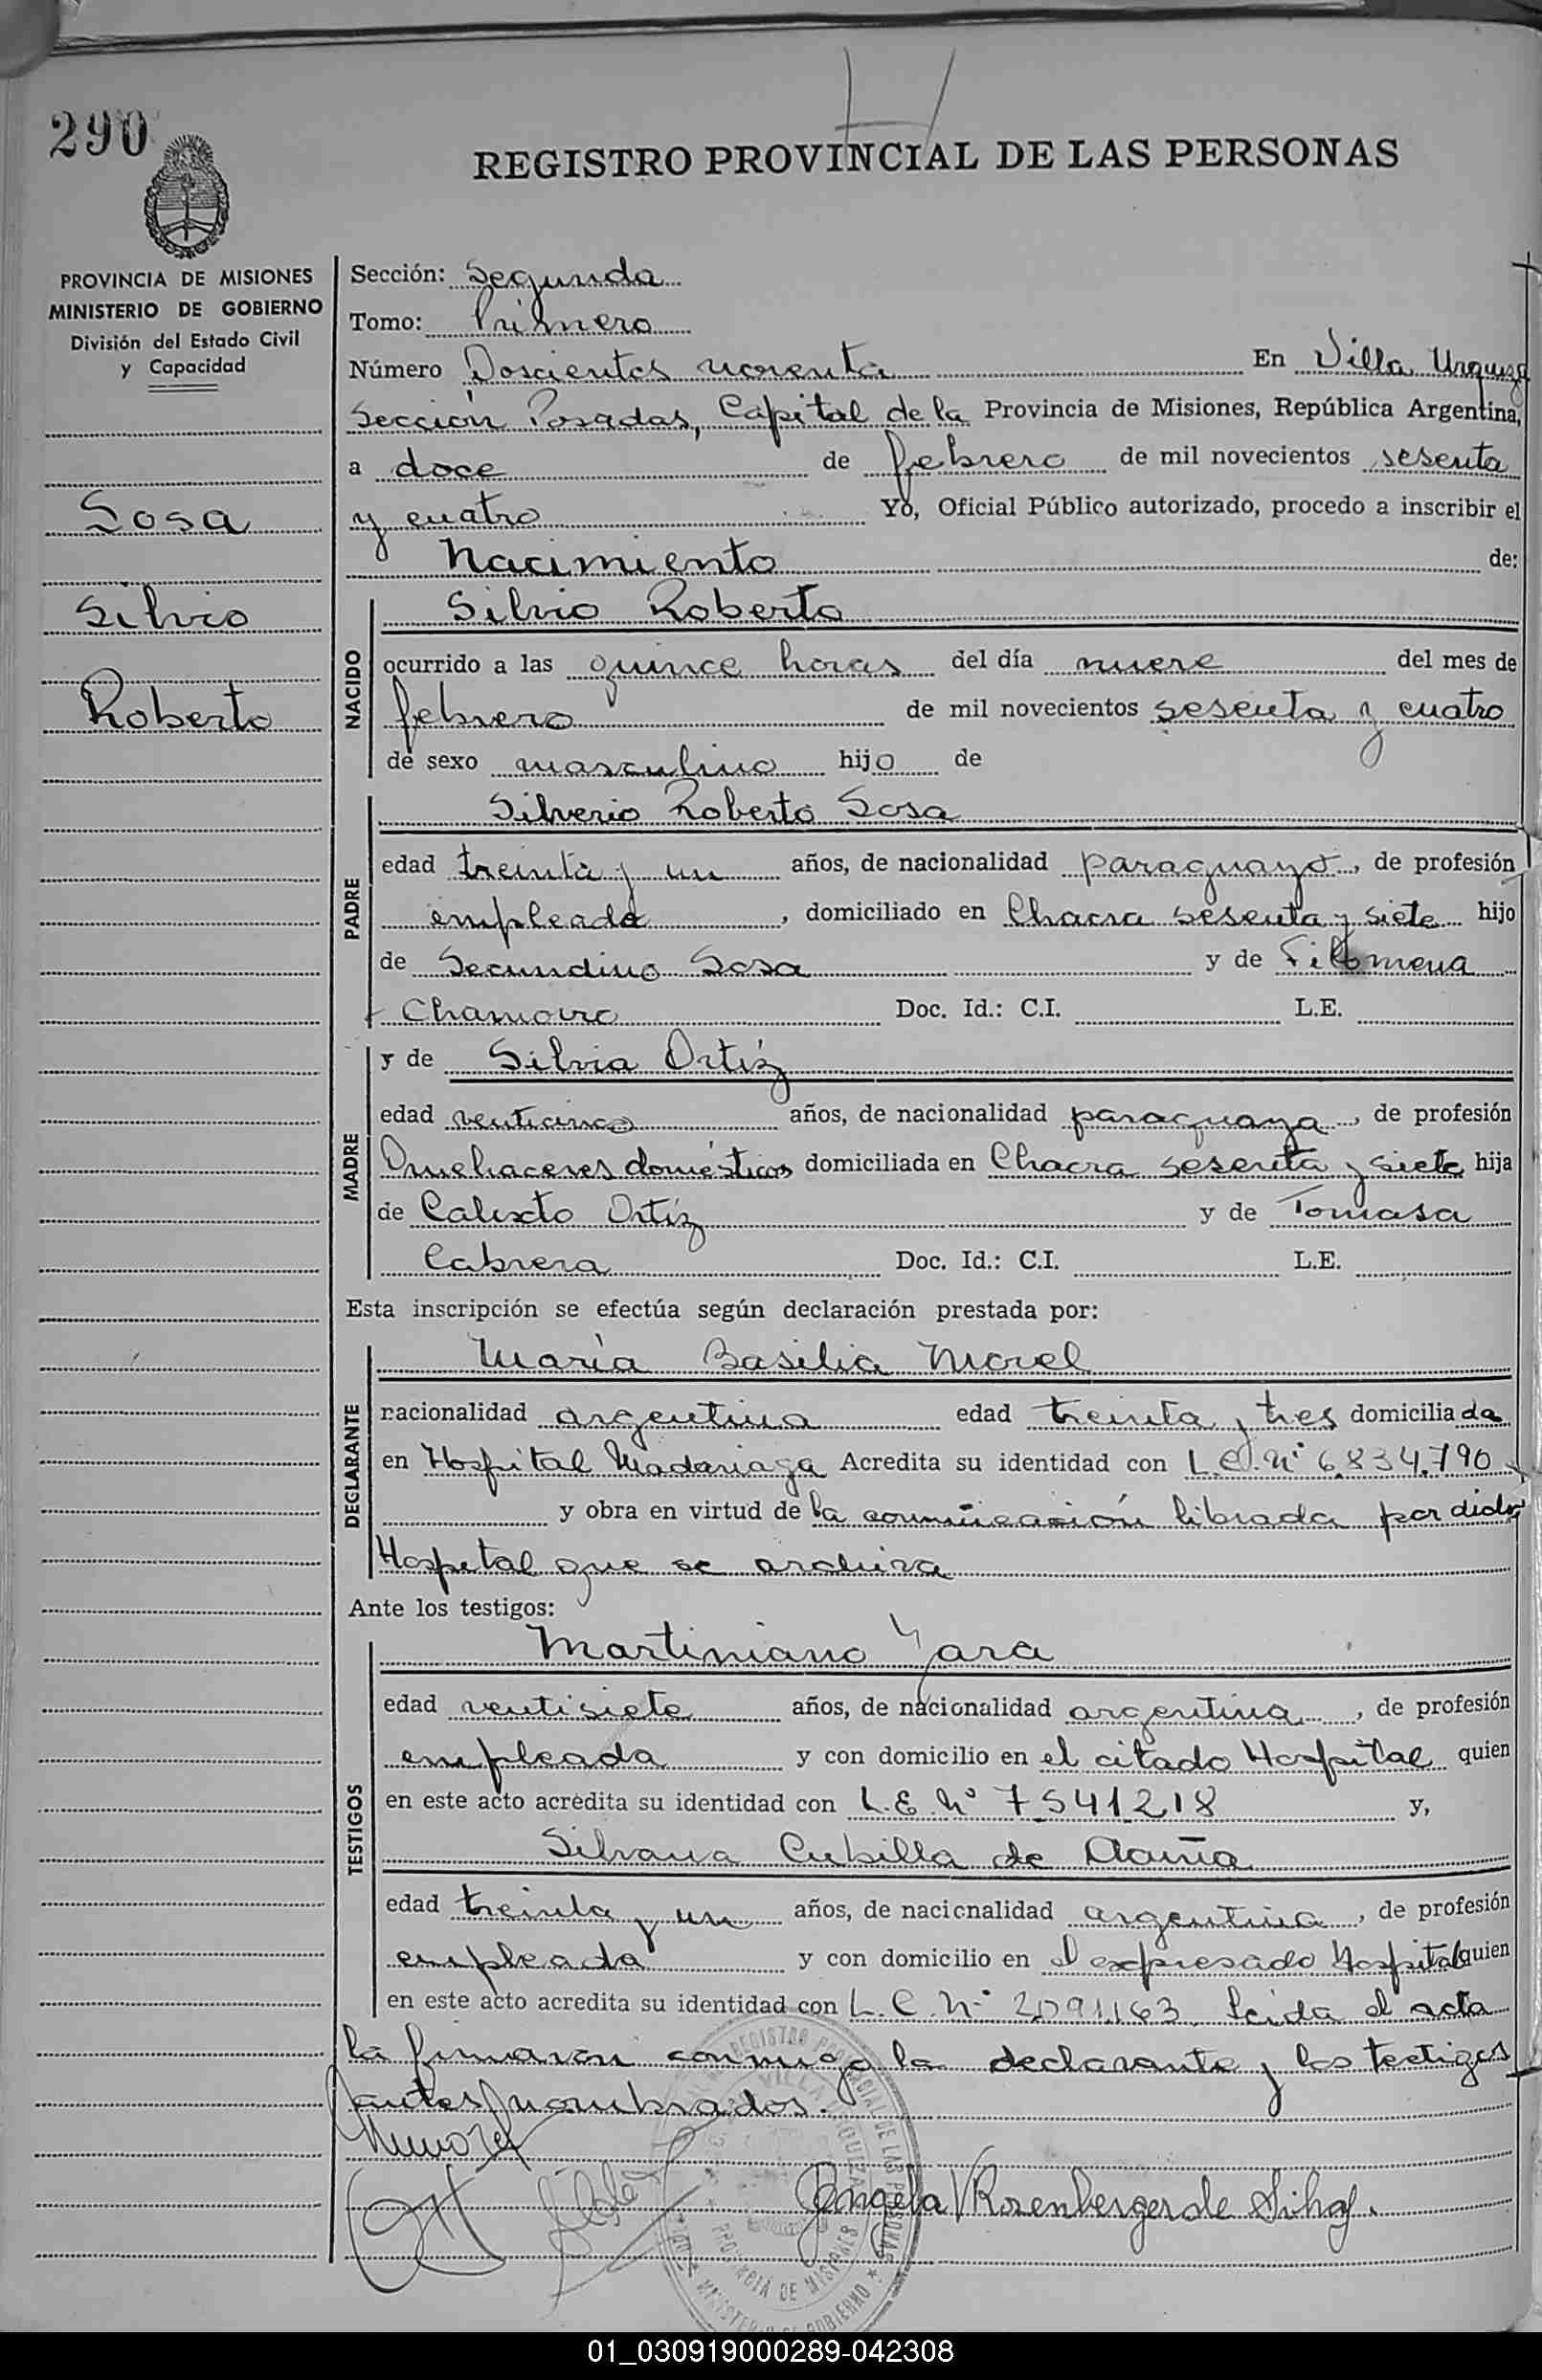 290
REGISTRO PROVINCIAL DE LAS PERSONAS
PROVINCIA DE MISIONES
MINISTERIO DE GOBIERNO
División del Estado Civil
y Capacidad
Sosa
Silvio
Roberto
Sección: Segunda
Tomo: Primero
Número Doscientos noventa En Villa Urquiza
Sección Posadas, Capital de la Provincia de Misiones, República Argentina,
a doce de febrero de mil novecientos sesenta
y cuatro Yo, Oficial Público autorizado, procedo a inscribir el
Nacimiento de:
NACIDO
Silvio Roberto
ocurrido a las quince horas del día nueve del mes de
febrero de mil novecientos sesenta y cuatro
de sexo masculino hijo de
PADRE
Silverio Roberto Sosa
edad treinta y un años, de nacionalidad paraguayo, de profesión
empleado, domiciliado en Chacra sesenta y siete hijo
de Secundino Sosa y de Filomena
Chamorro Doc. Id.: C.I. L.E.
MADRE
y de Silvia Ortíz
edad venticinco años, de nacionalidad paraguaya, de profesión
Quehaceres domésticos domiciliada en Chacra sesenta y siete hija
de Calixto Ortíz y de Tomasa
Cabrera Doc. Id.: C.I. L.E.
Esta inscripción se efectúa según declaración prestada por:
DECLARANTE
María Basilia Morel
nacionalidad argentina edad treinta y tres domiciliada
en Hospital Madariaga Acredita su identidad con L.C. Nº 6.834.790
y obra en virtud de la comunicación librada por dicho
Hospital que se archiva
Ante los testigos:
TESTIGOS
Martiniano Yara
edad ventisiete años, de nacionalidad argentina, de profesión
empleada y con domicilio en el citado Hospital quien
en este acto acredita su identidad con L.E. Nº 7541218 y,
Silvana Cubilla de Acuña
edad treinta y un años, de nacionalidad argentina, de profesión
empleada y con domicilio en el expresado Hospital quien
en este acto acredita su identidad con L.C. Nº 2.091.163 Leída el acta
la firmaron conmigo la declarante y los testigos
antes nombrados.
Angela V Rosenberger de
REGISTRO PROVINCIAL DE LAS PERSONAS
VILLA URQUIZA
PROVINCIA DE MISIONES
01_030919000289-042308